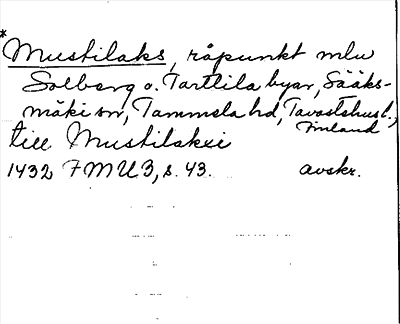 *Mustilaks, råpunkt mlu
Solberg o. Tarttila byar, Sääks-
mäki sn, Tammela hd, Tavastehus l.,
Finland
till Mustilakxi
1432 FMU3, s. 43. avskr.